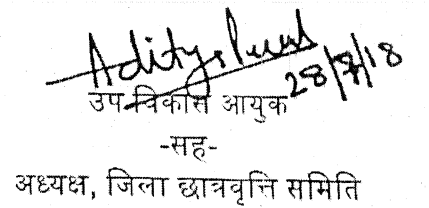 Aditya
28/8/18
उप विकास आयुक
-सह-
अध्यक्ष, जिला छात्रवृत्ति समिति